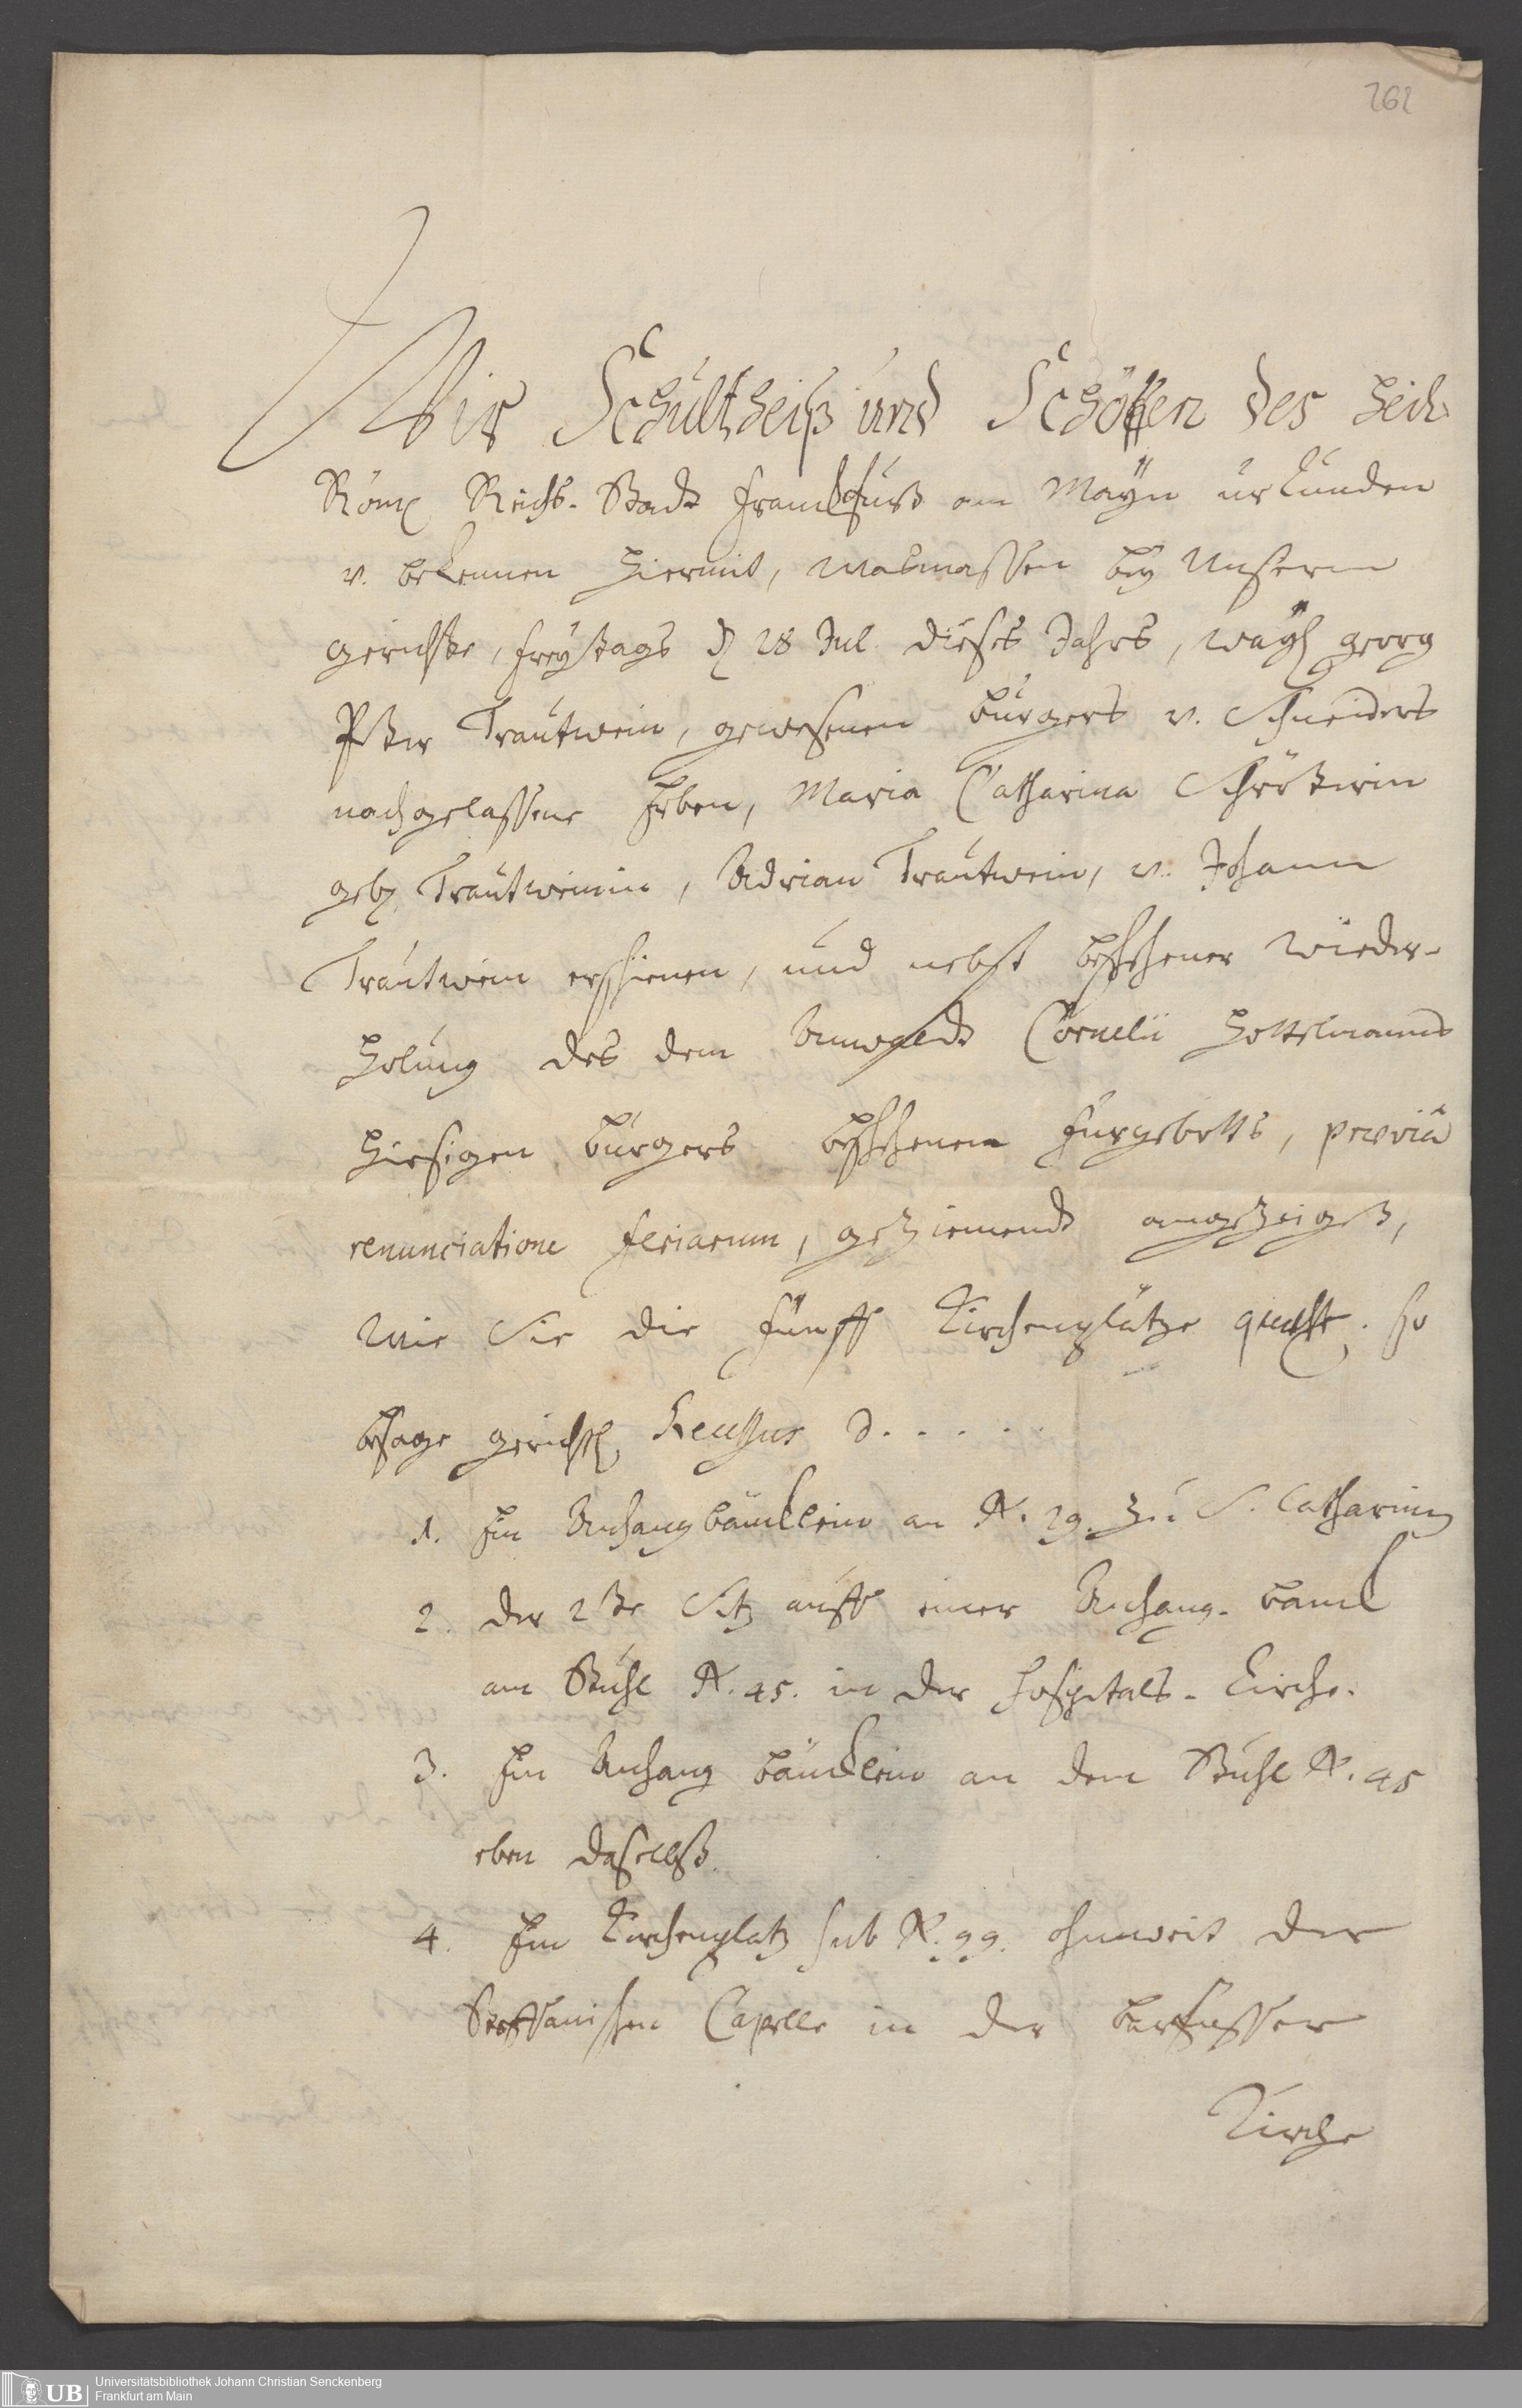 262
Wir Schultheiß und Schöffen des Heil.
Röm. Reichs-Stadt Franckfurt am Mayn urkunden
v. bekennen hiermit, was massen bey Unserm
gerichte, freytags d. 28 Jul. dieses Jahrs, wayl. georg
Peter Trautwein, gewesenen burgers v. Schneiders
nachgelassene Erben, Maria Catharina Schröterin
geb. Trautweinin, Adrian Trautwein, v. Johann
Trautwein erschienen, und nebst beschehener wieder-
holung des dem Anwaldt Cornelii Hottelmanns
hiesigen burgers beschehenen furgebotts, praeviâ
renunciatione feriarum, geziemendt angezeiget,
wie Sie die fünff Kirchenplätze quaest. so
besage gerichtl. Recessus d. . . . . .
1. Ein Anhangbäncklein an N. 29. zu S. Catharinen
2. der 2te Sitz auff einer Anhang-banck
am Stuhl N. 45. in der Hospitals-Kirche.
3. Ein Anhang bäncklein an dem Stuhl N. 45
eben daselbst.
4. Ein Kirchenplatz sub N. 99. ohnweit der
Capelle in der barfusser
Kirche
UB Universitätsbibliothek Johann Christian Senckenberg
Frankfurt am Main